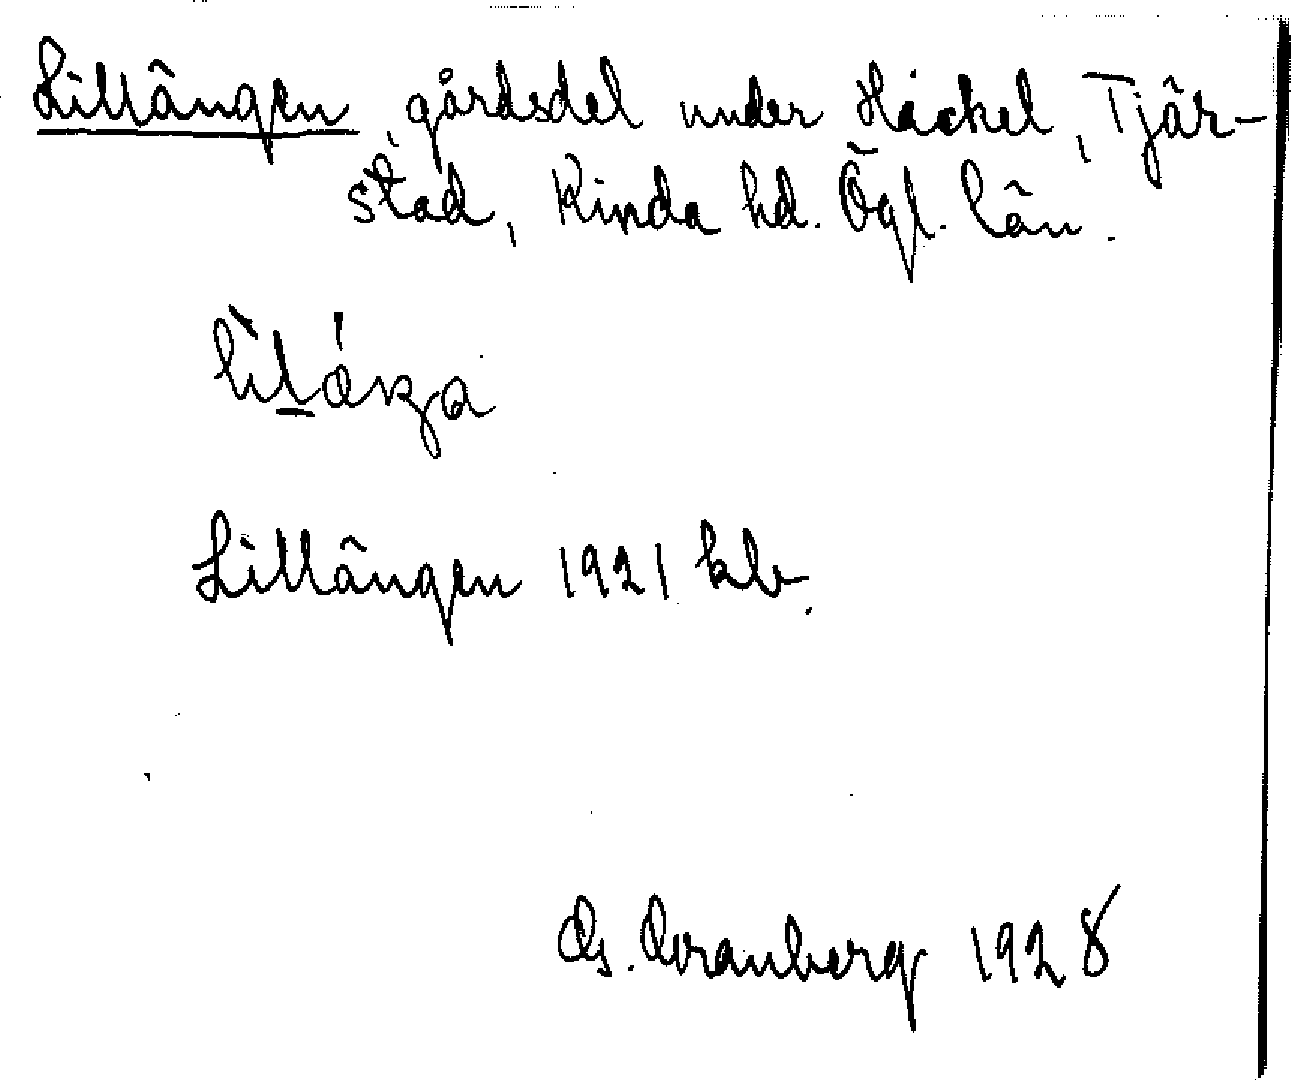 Lillängen, gårdsdel under Häckel, Tjär-
stad, Kinda hd. Ögl. län.
Lillängen 1921 kb.
G. Granberg 1928